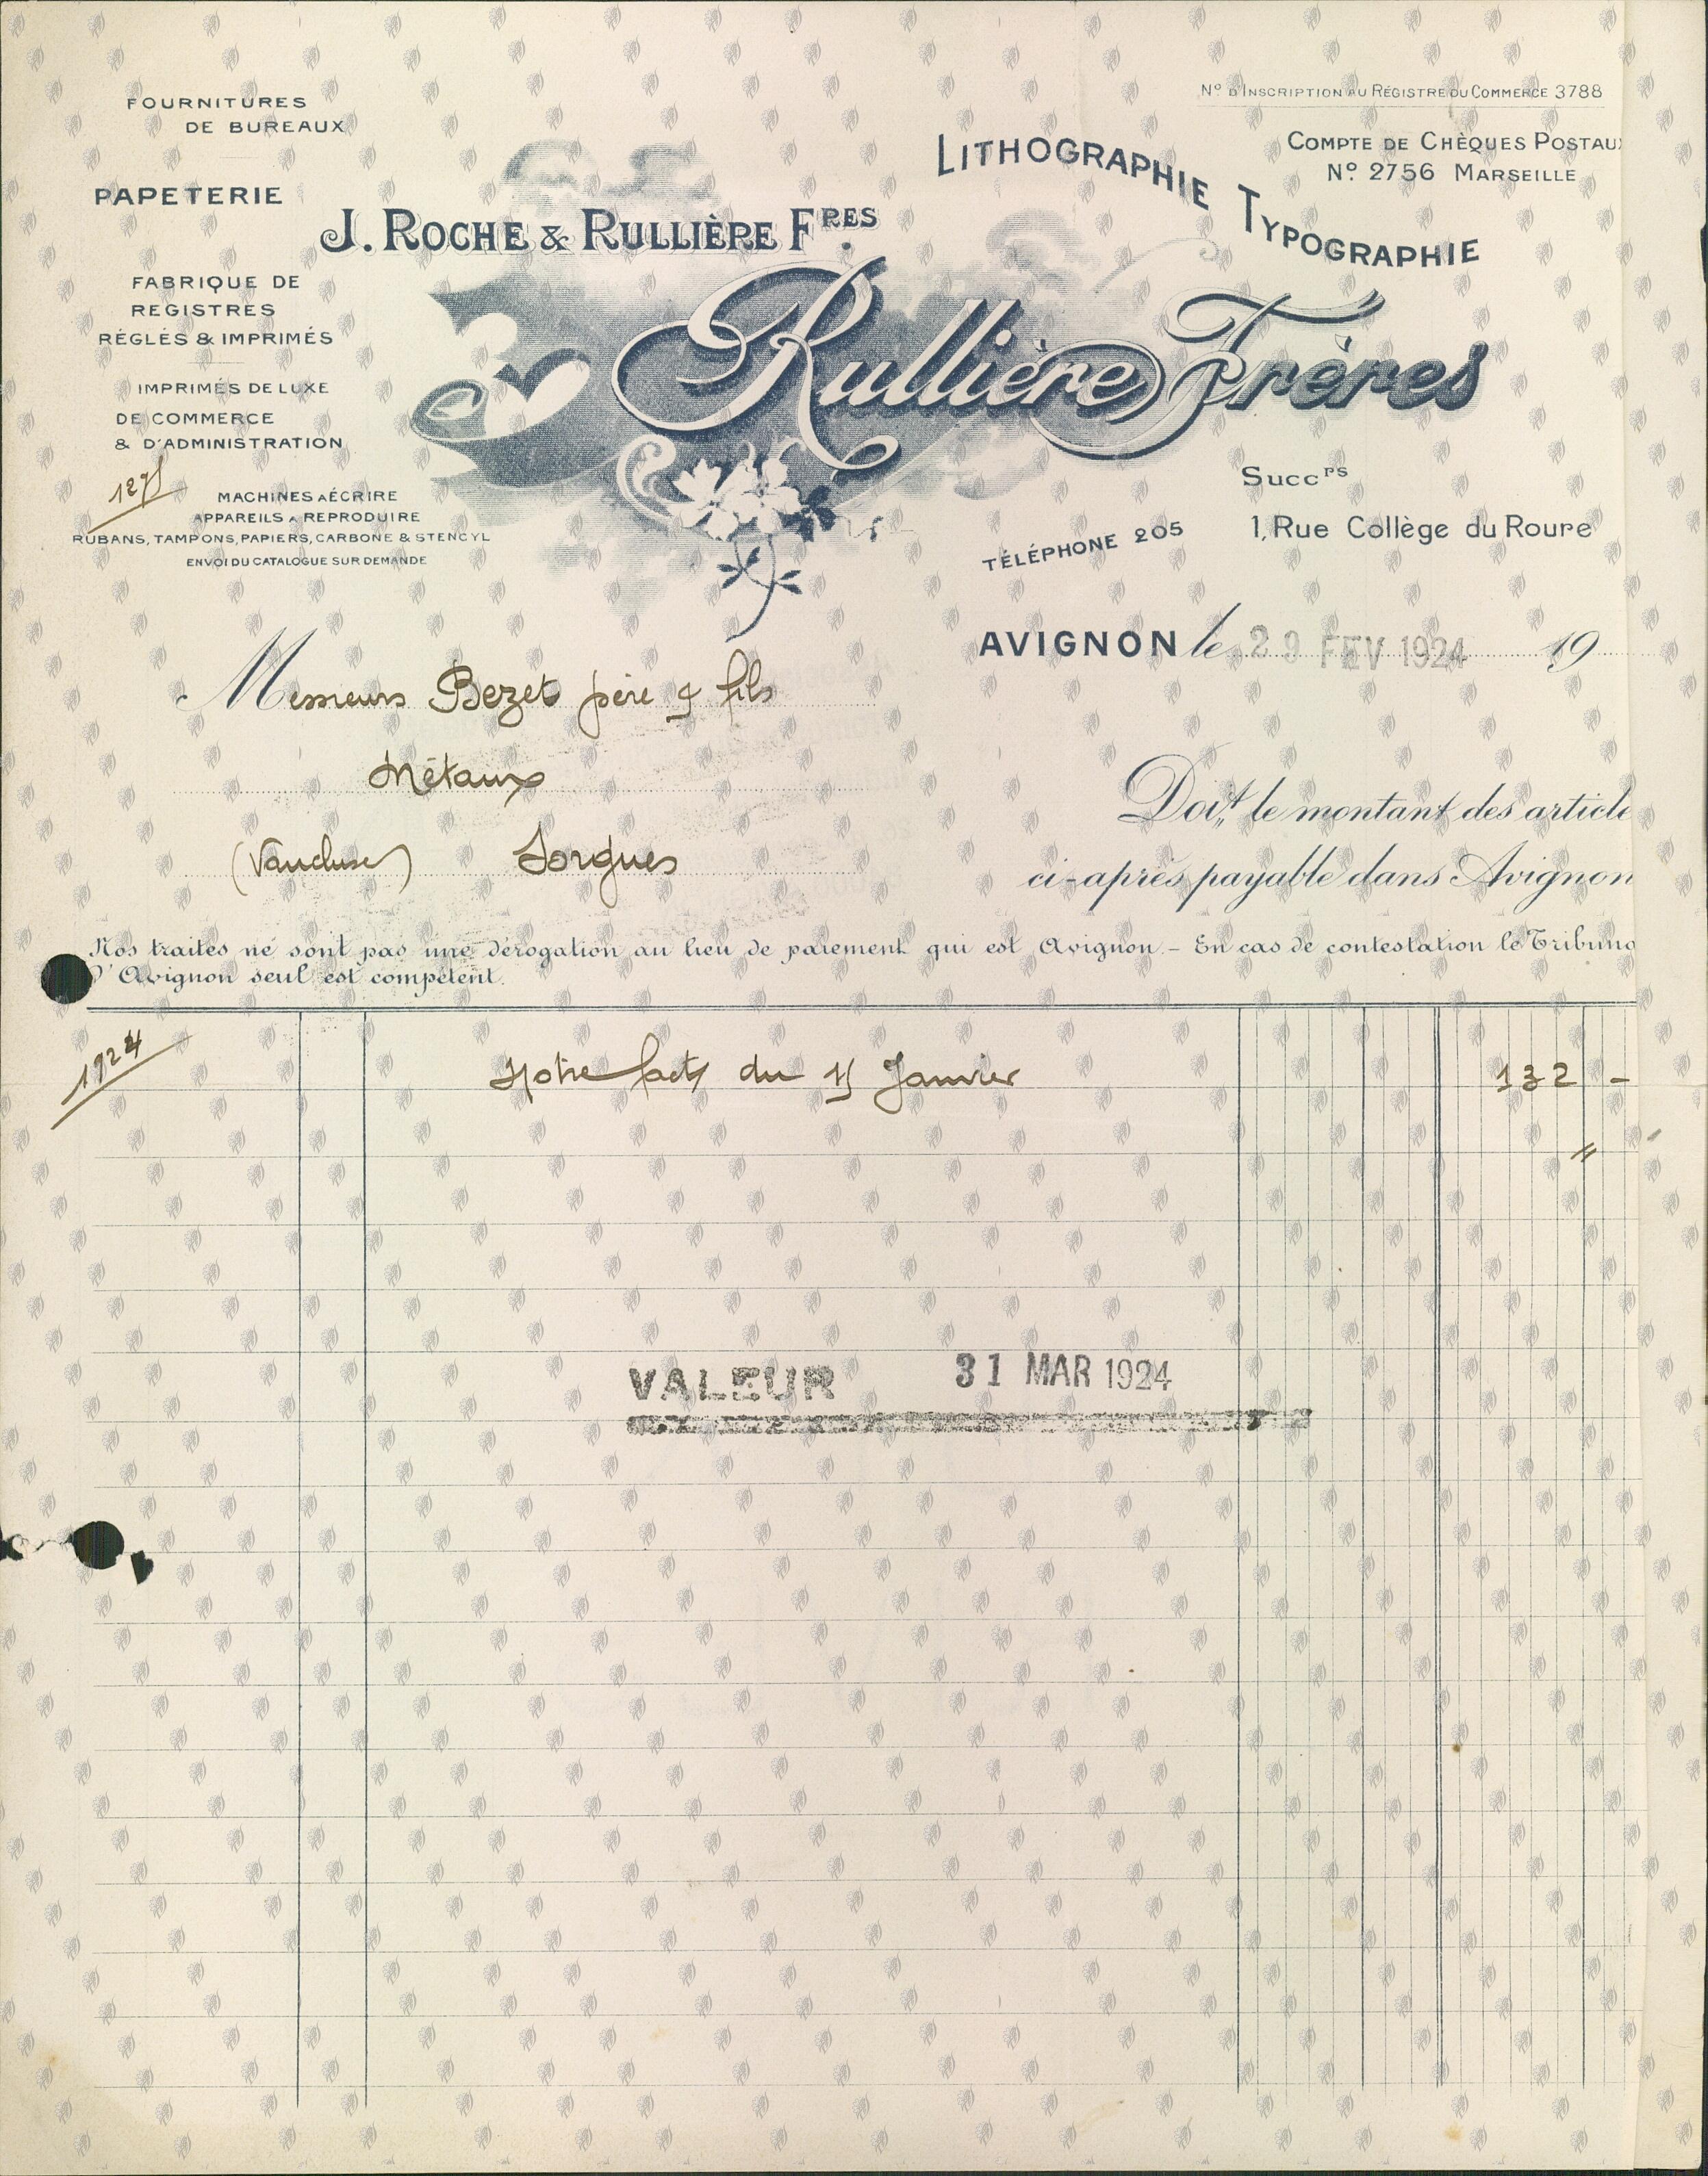 FOURNITURES
DE BUREAUX
PAPETERIE
FABRIQUE DE
REGISTRES
RÉGLÉS & IMPRIMÉS
IMPRIMÉS DE LUXE
DE COMMERCE
& D'ADMINISTRATION
MACHINES A ÉCRIRE
APPAREILS A REPRODUIRE
RUBANS, TAMPONS, PAPIERS, CARBONE & STENCYL
ENVOI DU CATALOGUE SUR DEMANDE
Nº D'INSCRIPTION AU RÉGISTRE DU COMMERCE 3788
COMPTE DE CHÈQUES POSTAU
Nº 2756 MARSEILLE
LITHOGRAPHIE TYPOGRAPHIE
J. ROCHE & RULLIÈRE FRES
Rullière Frères
Succrs
TÉLÉPHONE 205
1, Rue Collège du Roure
AVIGNON le 29 FEV 1924 19
Messieurs Bezet père & fils
Métaux
(Vaucluse) Sorgues
Doivt le montant des article
ci-après payable dans Avignon
Nos traites ne sont pas une dérogation au lieu de paiement qui est Avignon.- En cas de contestation le Tribuna
d'Avignon seul est compétent.
1924
Notre fact du 15 Janvier 132 -
VALEUR 31 MAR 1924